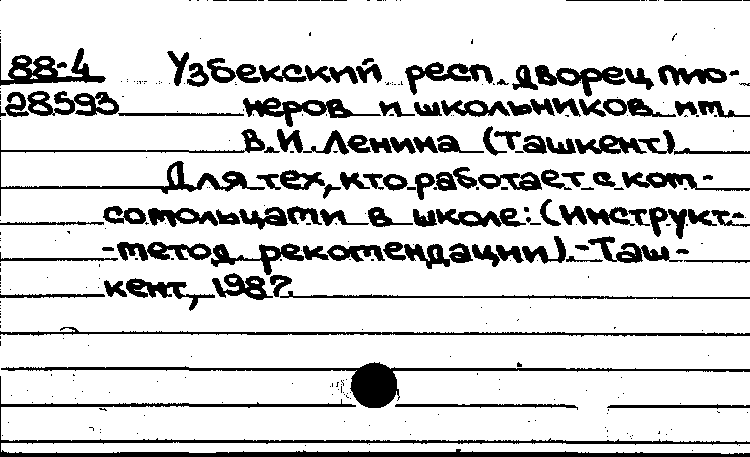 88-4 Узбекский респ. дворец пио-
28593 неров и школьников им.
В.И. Ленина (Ташкент).
Для тех, кто работает с ком-
сомольцами в школе: (Инструкт.-
-метод. рекомендации).-Таш-
кент, 1987.